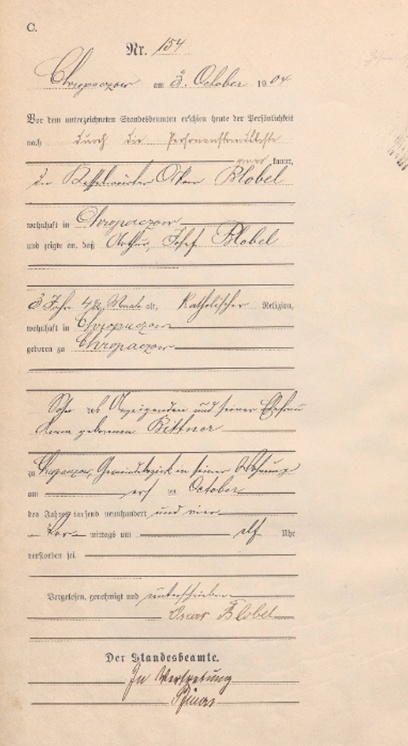 C.
Nr. 154
Chropaczow am 3. October 1904
Vor dem unterzeichneten Standesbeamten erschien heute der Persönlichkeit
nach durch die
kannt,
der Oskar Blobel
wohnhaft in Chropaczow
und zeigte an, daß Arthur, Josef Blobel
3 Jahr 4½ Monate alt, katholischer Religion,
wohnhaft in Chropaczow
geboren zu Chropaczow
Sohn des Anzeigenden und seiner Ehefrau
geborenen Bittner
zu Chropaczow, Gemeindebezirk in seiner Wohnung
am ersten October
des Jahres tausend neunhundert und vier
Vor mittags um elf Uhr
verstorben sei.
Vorgelesen, genehmigt und unterschrieben
Oscar Blobel
Der Standesbeamte.
In Vertretung